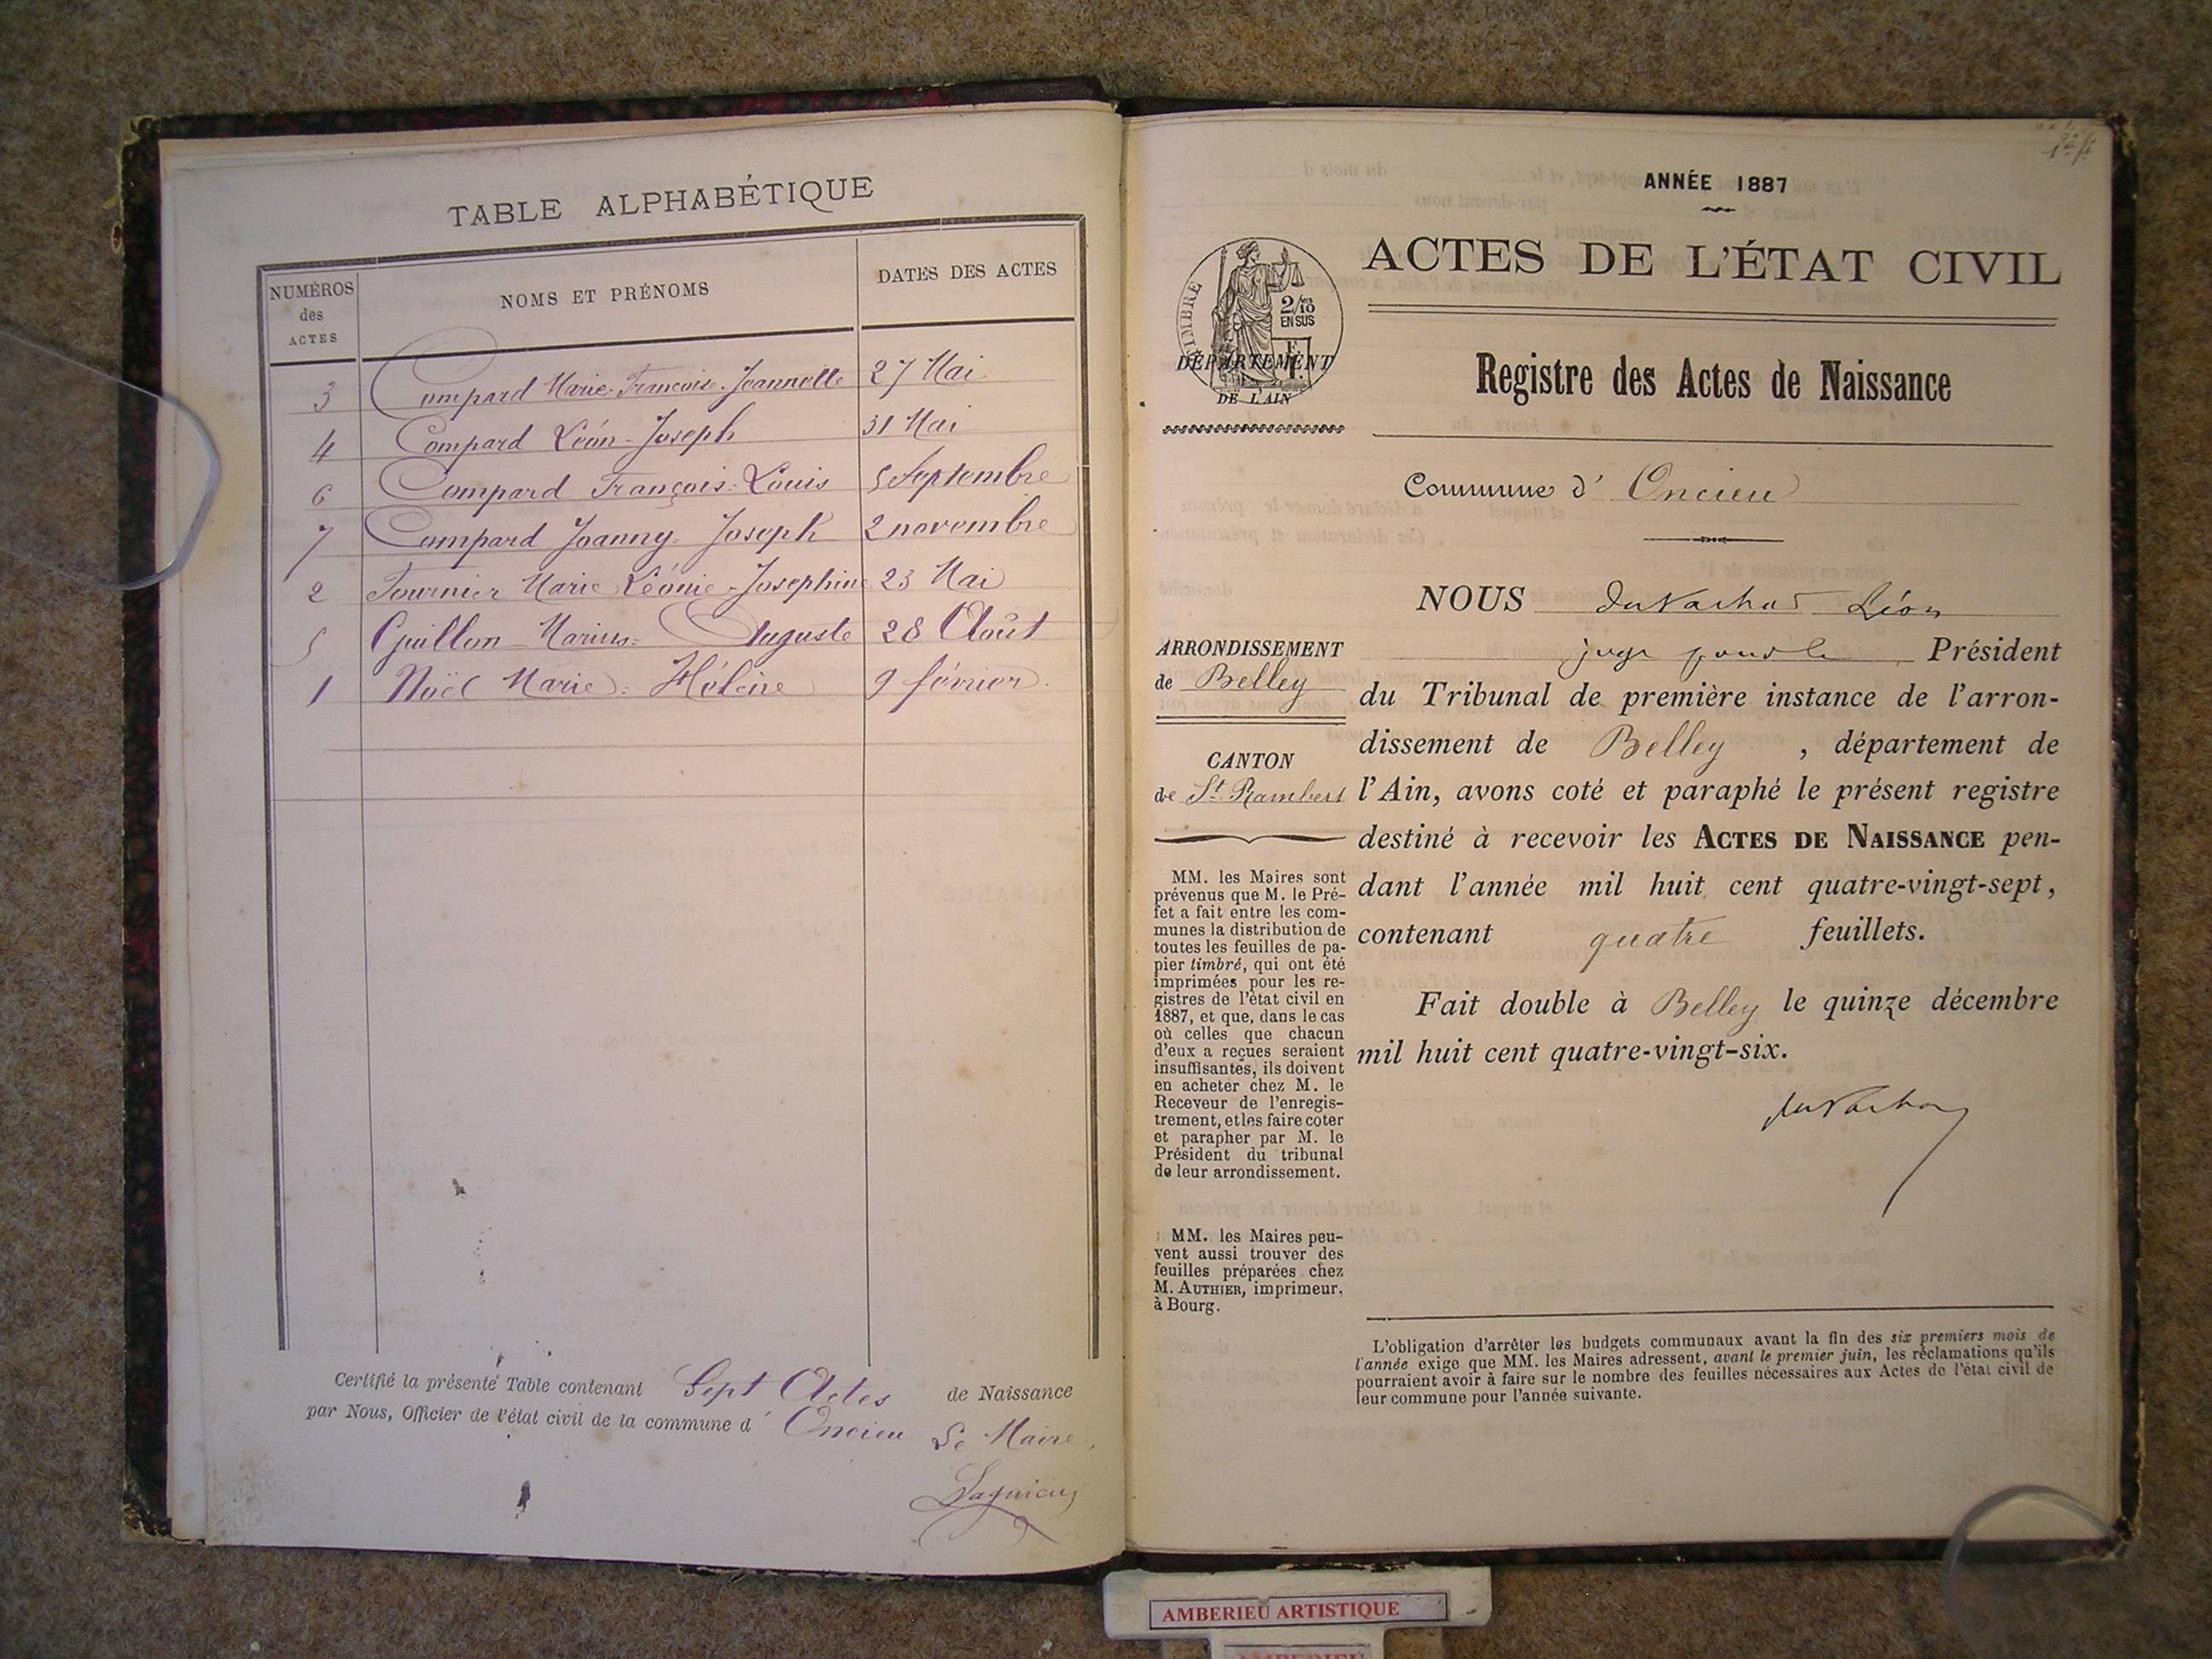 TABLE ALPHABÉTIQUE
NUMÉROS des ACTES NOMS ET PRÉNOMS DATES DES ACTES
3 Compard Marie-Françoise-Jeannette 27 Mai
4 Compard Léon-Joseph 31 Mai
6 Compard François-Louis 5 Septembre
7 Compard Joanny-Joseph 2 novembre
2 Fournier Marie Léonie-Joséphine 23 Mai
5 Guillon Marius-Auguste 28 Août
1 Noël Marie-Hélène 9 février
Certifié la présente Table contenant Sept Actes de Naissance
par Nous, Officier de l'état civil de la commune d' Oncieu Le Maire,
ANNÉE 1887
ACTES DE L'ÉTAT CIVIL
TIMBRE
2/10 EN SUS
DÉPARTEMENT
DE L'AIN
Registre des Actes de Naissance
Commune d' Oncieu
NOUS Léon
ARRONDISSEMENT
de Belley
CANTON
de St Rambert
MM. les Maires sont
prévenus que M. le Pré-
fet a fait entre les com-
munes la distribution de
toutes les feuilles de pa-
pier timbré, qui ont été
imprimées pour les re-
gistres de l'état civil en
1887, et que, dans le cas
où celles que chacun
d'eux a reçues seraient
insuffisantes, ils doivent
en acheter chez M. le
Receveur de l'enregis-
trement, et les faire coter
et parapher par M. le
Président du tribunal
de leur arrondissement.
MM. les Maires peu-
vent aussi trouver des
feuilles préparées chez
M. AUTHIER, imprimeur,
à Bourg.
juge pour le Président
du Tribunal de première instance de l'arron-
dissement de Belley, département de
l'Ain, avons coté et paraphé le présent registre
destiné à recevoir les ACTES DE NAISSANCE pen-
dant l'année mil huit cent quatre-vingt-sept,
contenant quatre feuillets.
Fait double à Belley le quinze décembre
mil huit cent quatre-vingt-six.
L'obligation d'arrêter les budgets communaux avant la fin des six premiers mois de
l'année exige que MM. les Maires adressent, avant le premier juin, les réclamations qu'ils
pourraient avoir à faire sur le nombre des feuilles nécessaires aux Actes de l'état civil de
leur commune pour l'année suivante.
AMBERIEU ARTISTIQUE
AMBERIEU